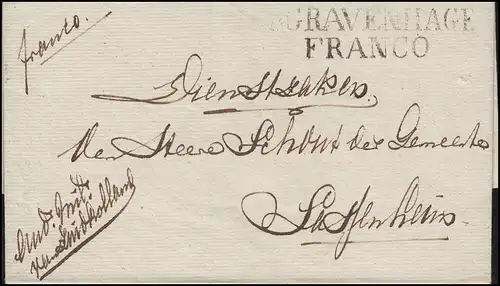 franco.
SGRAVENHAGE
FRANCO
Dienstzaken.
den Heere Schout der Gemeente
Sassenheim
van Zuidholland